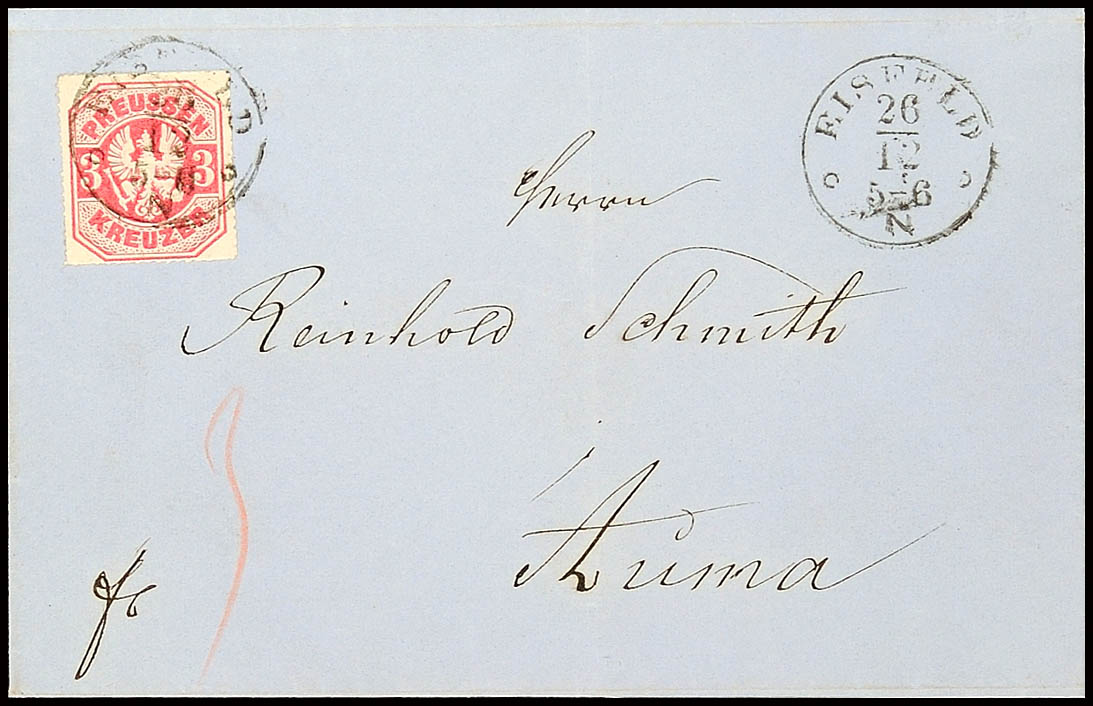 PREUSSEN
3 3
KREUZER
EISFELD
26
12
5-6
N
Herrn
Reinhold Schmith
Auma
fr